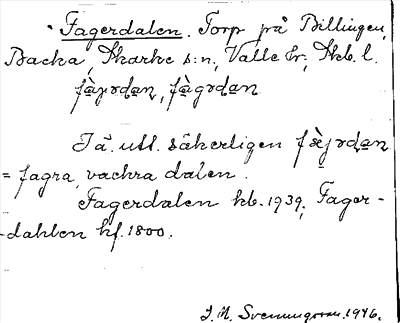 Fagerdalen. Torp på Billingen,
Backa, Skarke s:n, Valle hr; Skb. l.
fàjərdan, fàgərdan
I ä. utt. säkerligen fæ̀jərdan
= fagra, vackra dalen.
Fagerdalen kb. 1939; Fager-
-dahlen hf. 1800.
S. M. Svenungsson. 1946.